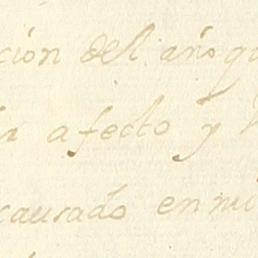 ción del año
afecto y
causado en mi